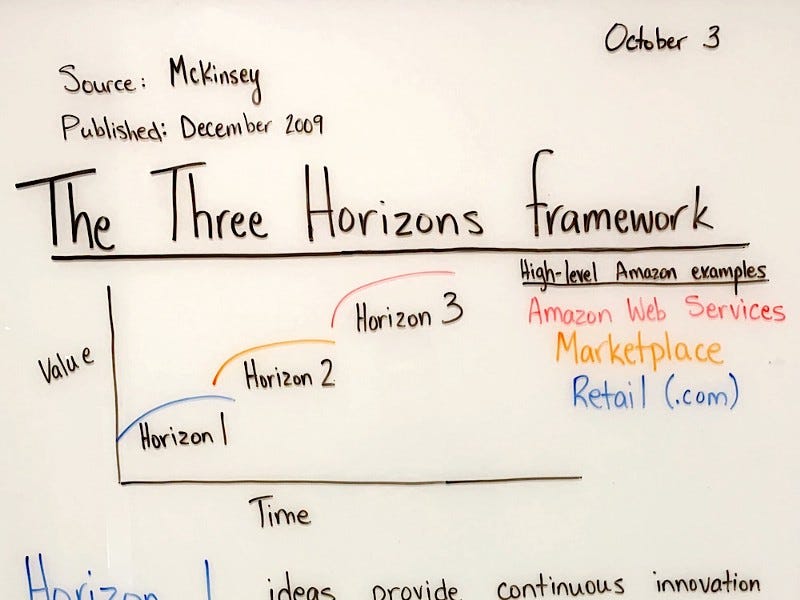 October 3
Source: McKinsey
Published: December 2009
The Three Horizons framework
High-level Amazon examples
Amazon Web Services
Marketplace
Retail (.com)
Value
Horizon 3
Horizon 2
Horizon 1
Time
Horizon 1 ideas provide continuous innovation